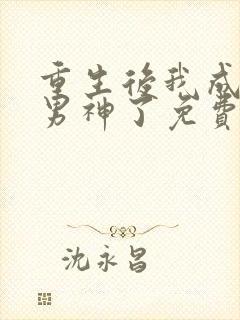 重生後我成
男神了免費
沈永昌